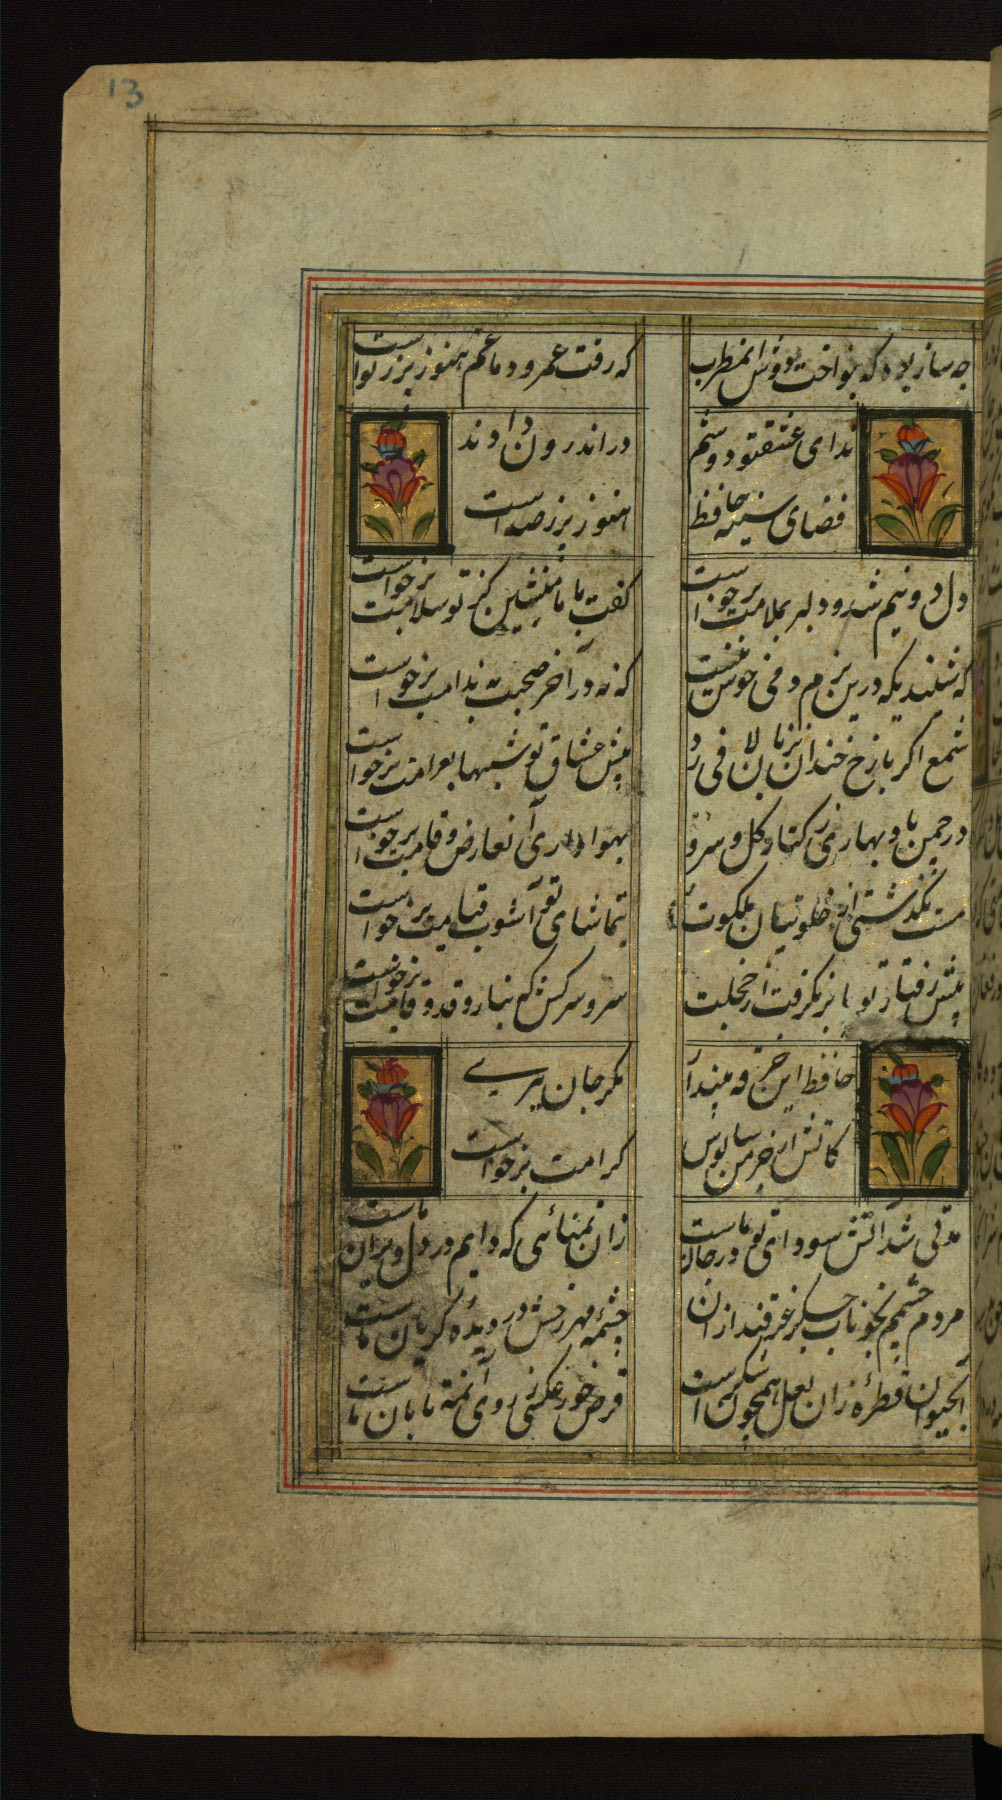 13
چه ساز بود که بنواخت دوش آنمطرب
که رفت عمرو دماغم هنوز پر ز نواست
ندای عشقتو دوشم
در اندرون دادند
فضای سینه حافظ
هنوز پر ز صداست
دل و دینم شد و دلبر بملامت برخواست
گفت با ما منشین کز تو سلامت برخواست
که شنیدیکه درین بزم دمی خوش بنشست
که نه در آخر صحبت بندامت برخواست
شمع اگر بازخ خندان بزبان لافی زد
پیش عشاق تو شبها بغرامت برخواست
در چمن باد بهاری ز کنار گل و سرو
بهواداری آنعارض و قامت برخواست
مست بگذشتی از خلوتیان ملکوت
بتماشای تو آشوب قیامت برخواست
پیش رفتار تو پا بر نگرفت از خجلت
سرو سرکش که بناز و قد و قامت برخواست
حافظ این خرقه بینداز
مگر جان ببری
کاتش از خرمن سالوس
کرامت برخواست
مدتی شد آتش سودای تو در جان ماست
زان تمنائی که دایم در دل ویران ماست
مردم چشمم بخوناب جگر غرقند از آن
چشمه مهر رخش در دیده گریان ماست
آبحیوان قطرهٔ زان لعل همچون شکرست
قرص خور عکسی ز روی آنمه تابان ماست